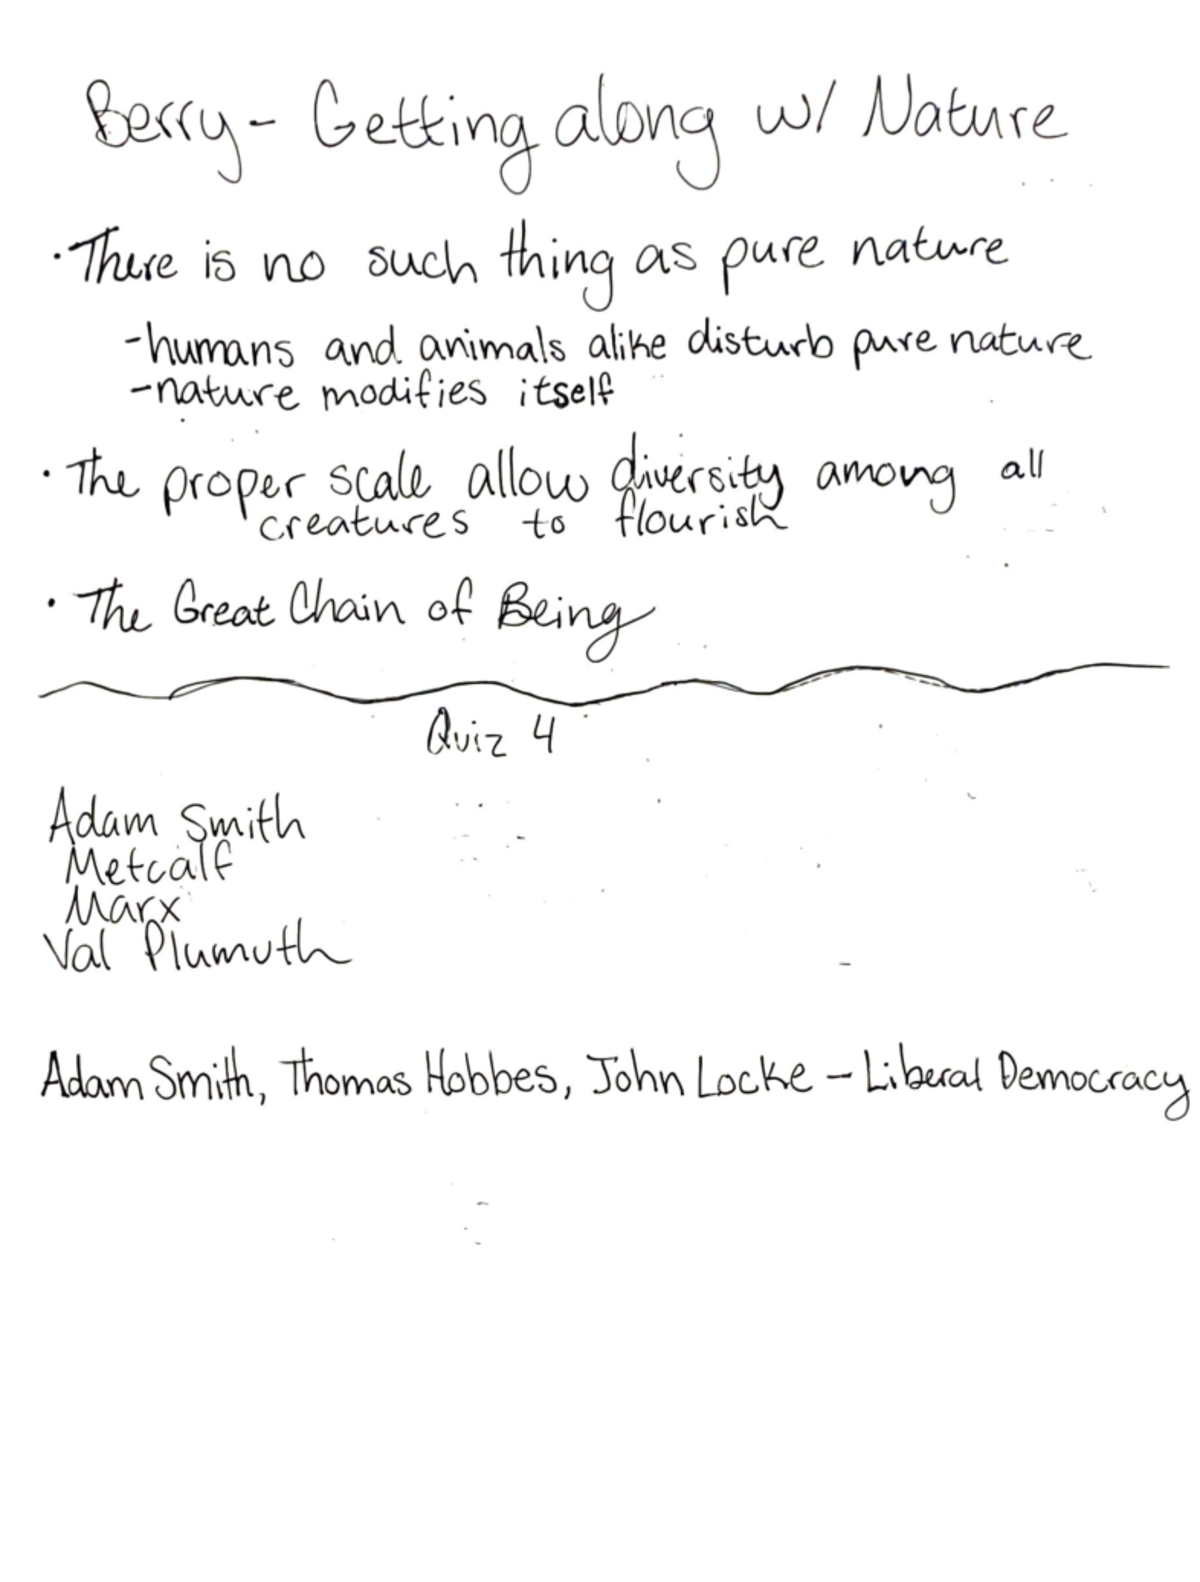 Berry - Getting along w/ Nature
· There is no such thing as pure nature
- humans and animals alike disturb pure nature
- nature modifies itself
· The proper scale allow diversity among all
creatures to flourish
· The Great Chain of Being
Quiz 4
Adam Smith
Metcalf
Marx
Val Plumuth
Adam Smith, Thomas Hobbes, John Locke - Liberal Democracy